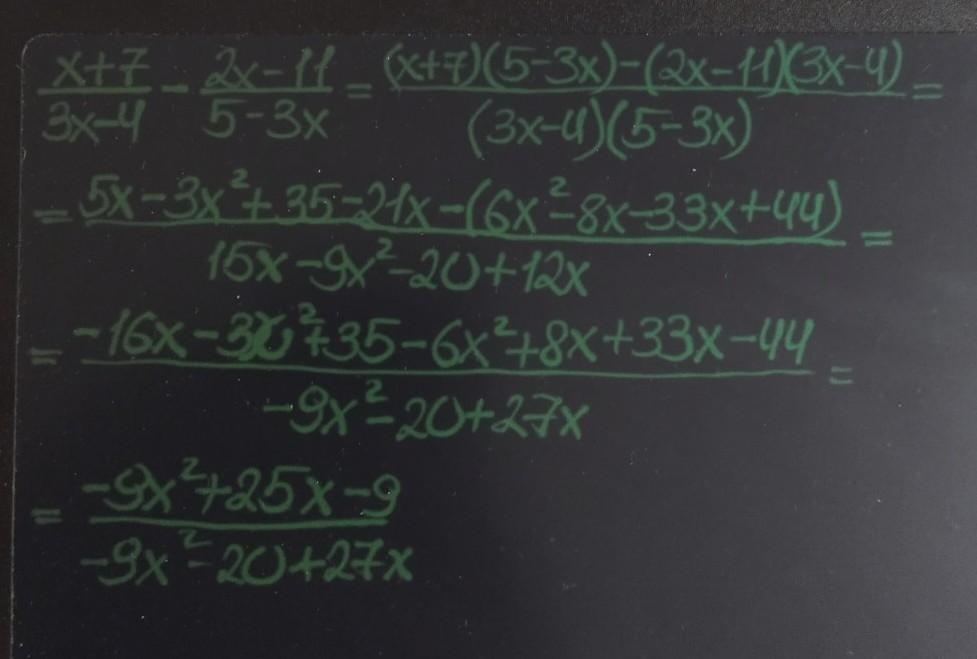 x+7/3x-4 - 2x-11/5-3x = (x+7)(5-3x)-(2x-11)(3x-4)/(3x-4)(5-3x) =
= 5x-3x²+35-21x-(6x²-8x-33x+44)/15x-9x²-20+12x =
= -16x-3x²+35-6x²+8x+33x-44/-9x²-20+27x =
= -9x²+25x-9/-9x²-20+27x